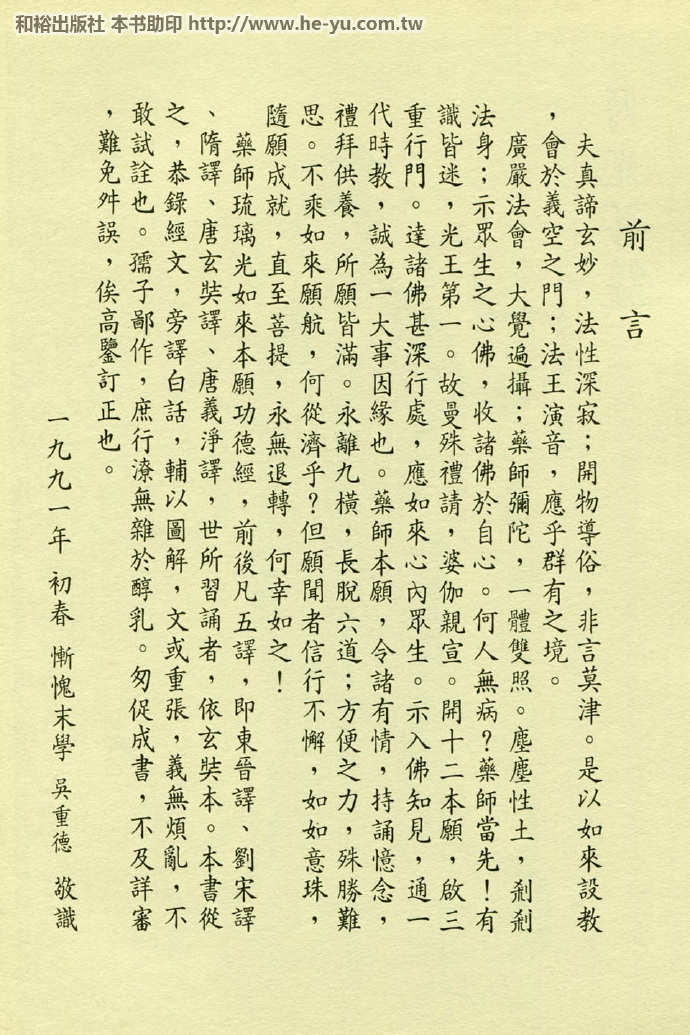 和裕出版社 本书助印 http://www.he-yu.com.tw
前言
夫真諦玄妙，法性深寂；開物導俗，非言莫津。是以如來設教
，會於義空之門；法王演音，應乎群有之境。
廣嚴法會，大覺遍攝；藥師彌陀，一體雙照。塵塵性土，剎剎
法身；示眾生之心佛，收諸佛於自心。何人無病？藥師當先！有
識皆迷，光王第一。故曼殊禮請，婆伽親宣。開十二本願，啟三
重行門。達諸佛甚深行處，應如來心內眾生。示入佛知見，通一
代時教，誠為一大事因緣也。藥師本願，令諸有情，持誦憶念，
禮拜供養，所願皆滿。永離九橫，長脫六道；方便之力，殊勝難
思。不乘如來願航，何從濟乎？但願聞者信行不懈，如如意珠，
隨願成就，直至菩提，永無退轉，何幸如之！
藥師琉璃光如來本願功德經，前後凡五譯，即東晉譯、劉宋譯
、隋譯、唐玄奘譯、唐義淨譯，世所習誦者，依玄奘本。本書從
之，恭錄經文，旁譯白話，輔以圖解，文或重張，義無煩亂，不
敢試詮也。孺子鄙作，庶行潦無雜於醇乳。匆促成書，不及詳審
，難免舛誤，俟高鑒訂正也。
一九九一年 初春 慚愧末學 吳重德 敬識